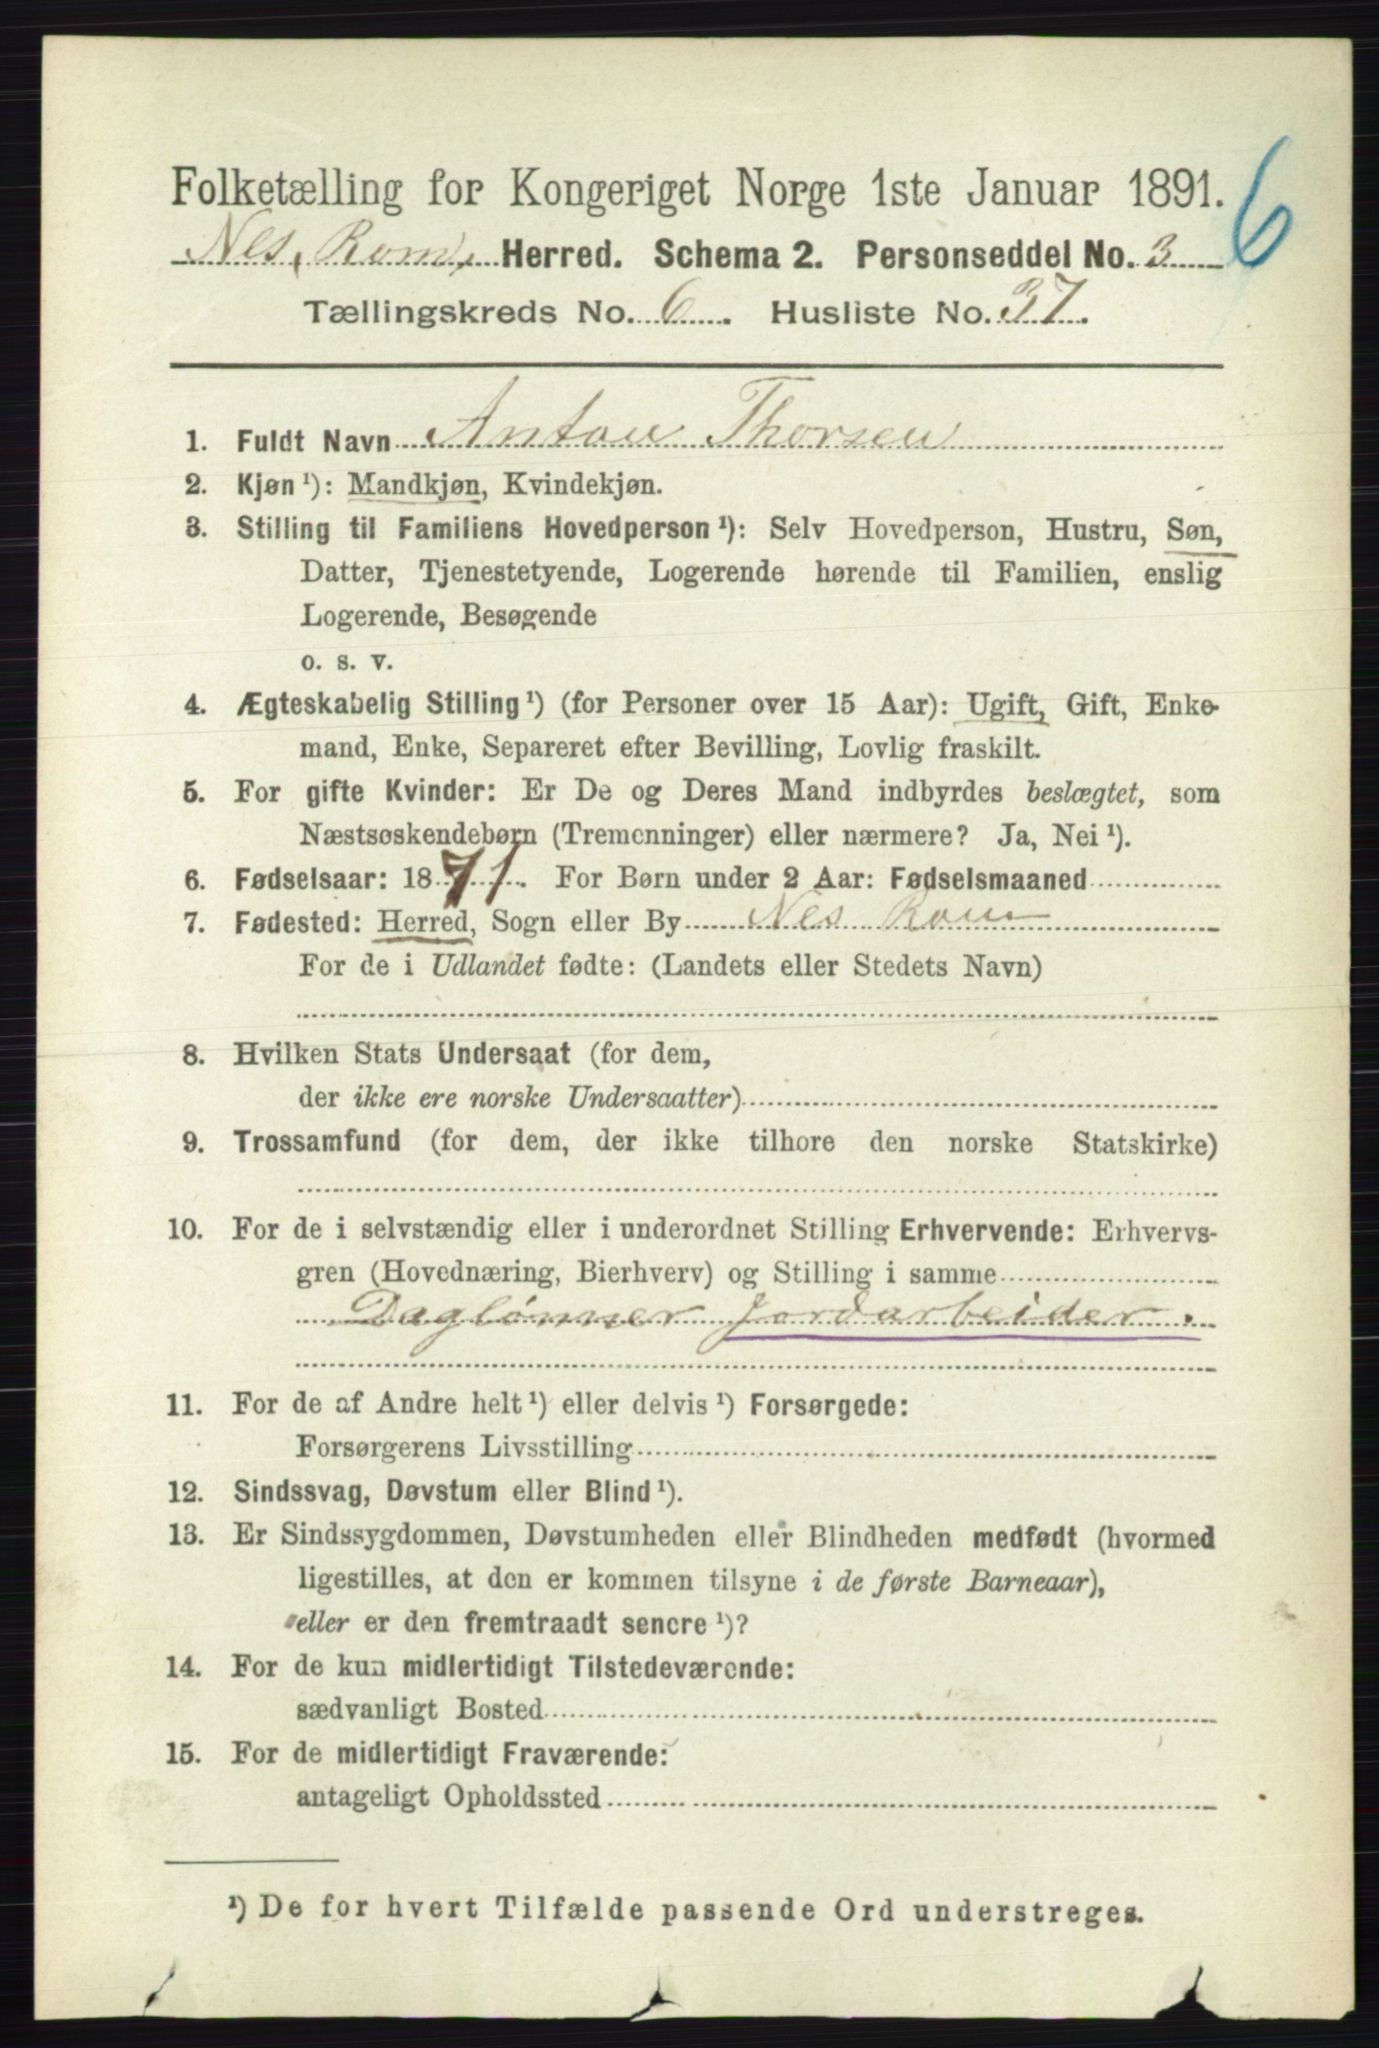 Folketælling for Kongeriget Norge 1ste Januar 1891.
6
Nes, Rom, Herred. Schema 2. Personseddel No. 3
Tællingskreds No. 6. Husliste No. 37.
1. Fuldt Navn Anton Thorsen
2. Kjøn ¹): Mandkjøn, Kvindekjøn.
3. Stilling til Familiens Hovedperson ¹): Selv Hovedperson, Hustru, Søn,
Datter, Tjenestetyende, Logerende hørende til Familien, enslig
Logerende, Besøgende
o. s. v.
4. Ægteskabelig Stilling ¹) (for Personer over 15 Aar): Ugift, Gift, Enke-
mand, Enke, Separeret efter Bevilling, Lovlig fraskilt.
5. For gifte Kvinder: Er De og Deres Mand indbyrdes beslægtet, som
Næstsøskendebørn (Tremenninger) eller nærmere? Ja, Nei ¹).
6. Fødselsaar: 1871. For Børn under 2 Aar: Fødselsmaaned
7. Fødested: Herred, Sogn eller By Nes Rom
For de i Udlandet fødte: (Landets eller Stedets Navn)
8. Hvilken Stats Undersaat (for dem,
der ikke ere norske Undersaatter)
9. Trossamfund (for dem, der ikke tilhøre den norske Statskirke)
10. For de i selvstændig eller i underordnet Stilling Erhvervende: Erhvervs-
gren (Hovednæring, Bierhverv) og Stilling i samme
Daglønner Jordarbeider.
11. For de af Andre helt ¹) eller delvis ¹) Forsørgede:
Forsørgerens Livsstilling
12. Sindssvag, Døvstum eller Blind ¹).
13. Er Sindssygdommen, Døvstumheden eller Blindheden medfødt (hvormed
ligestilles, at den er kommen tilsyne i de første Barneaar),
eller er den fremtraadt senere ¹)?
14. For de kun midlertidigt Tilstedeværende:
sædvanligt Bosted
15. For de midlertidigt Fraværende:
antageligt Opholdssted
¹) De for hvert Tilfælde passende Ord understreges.